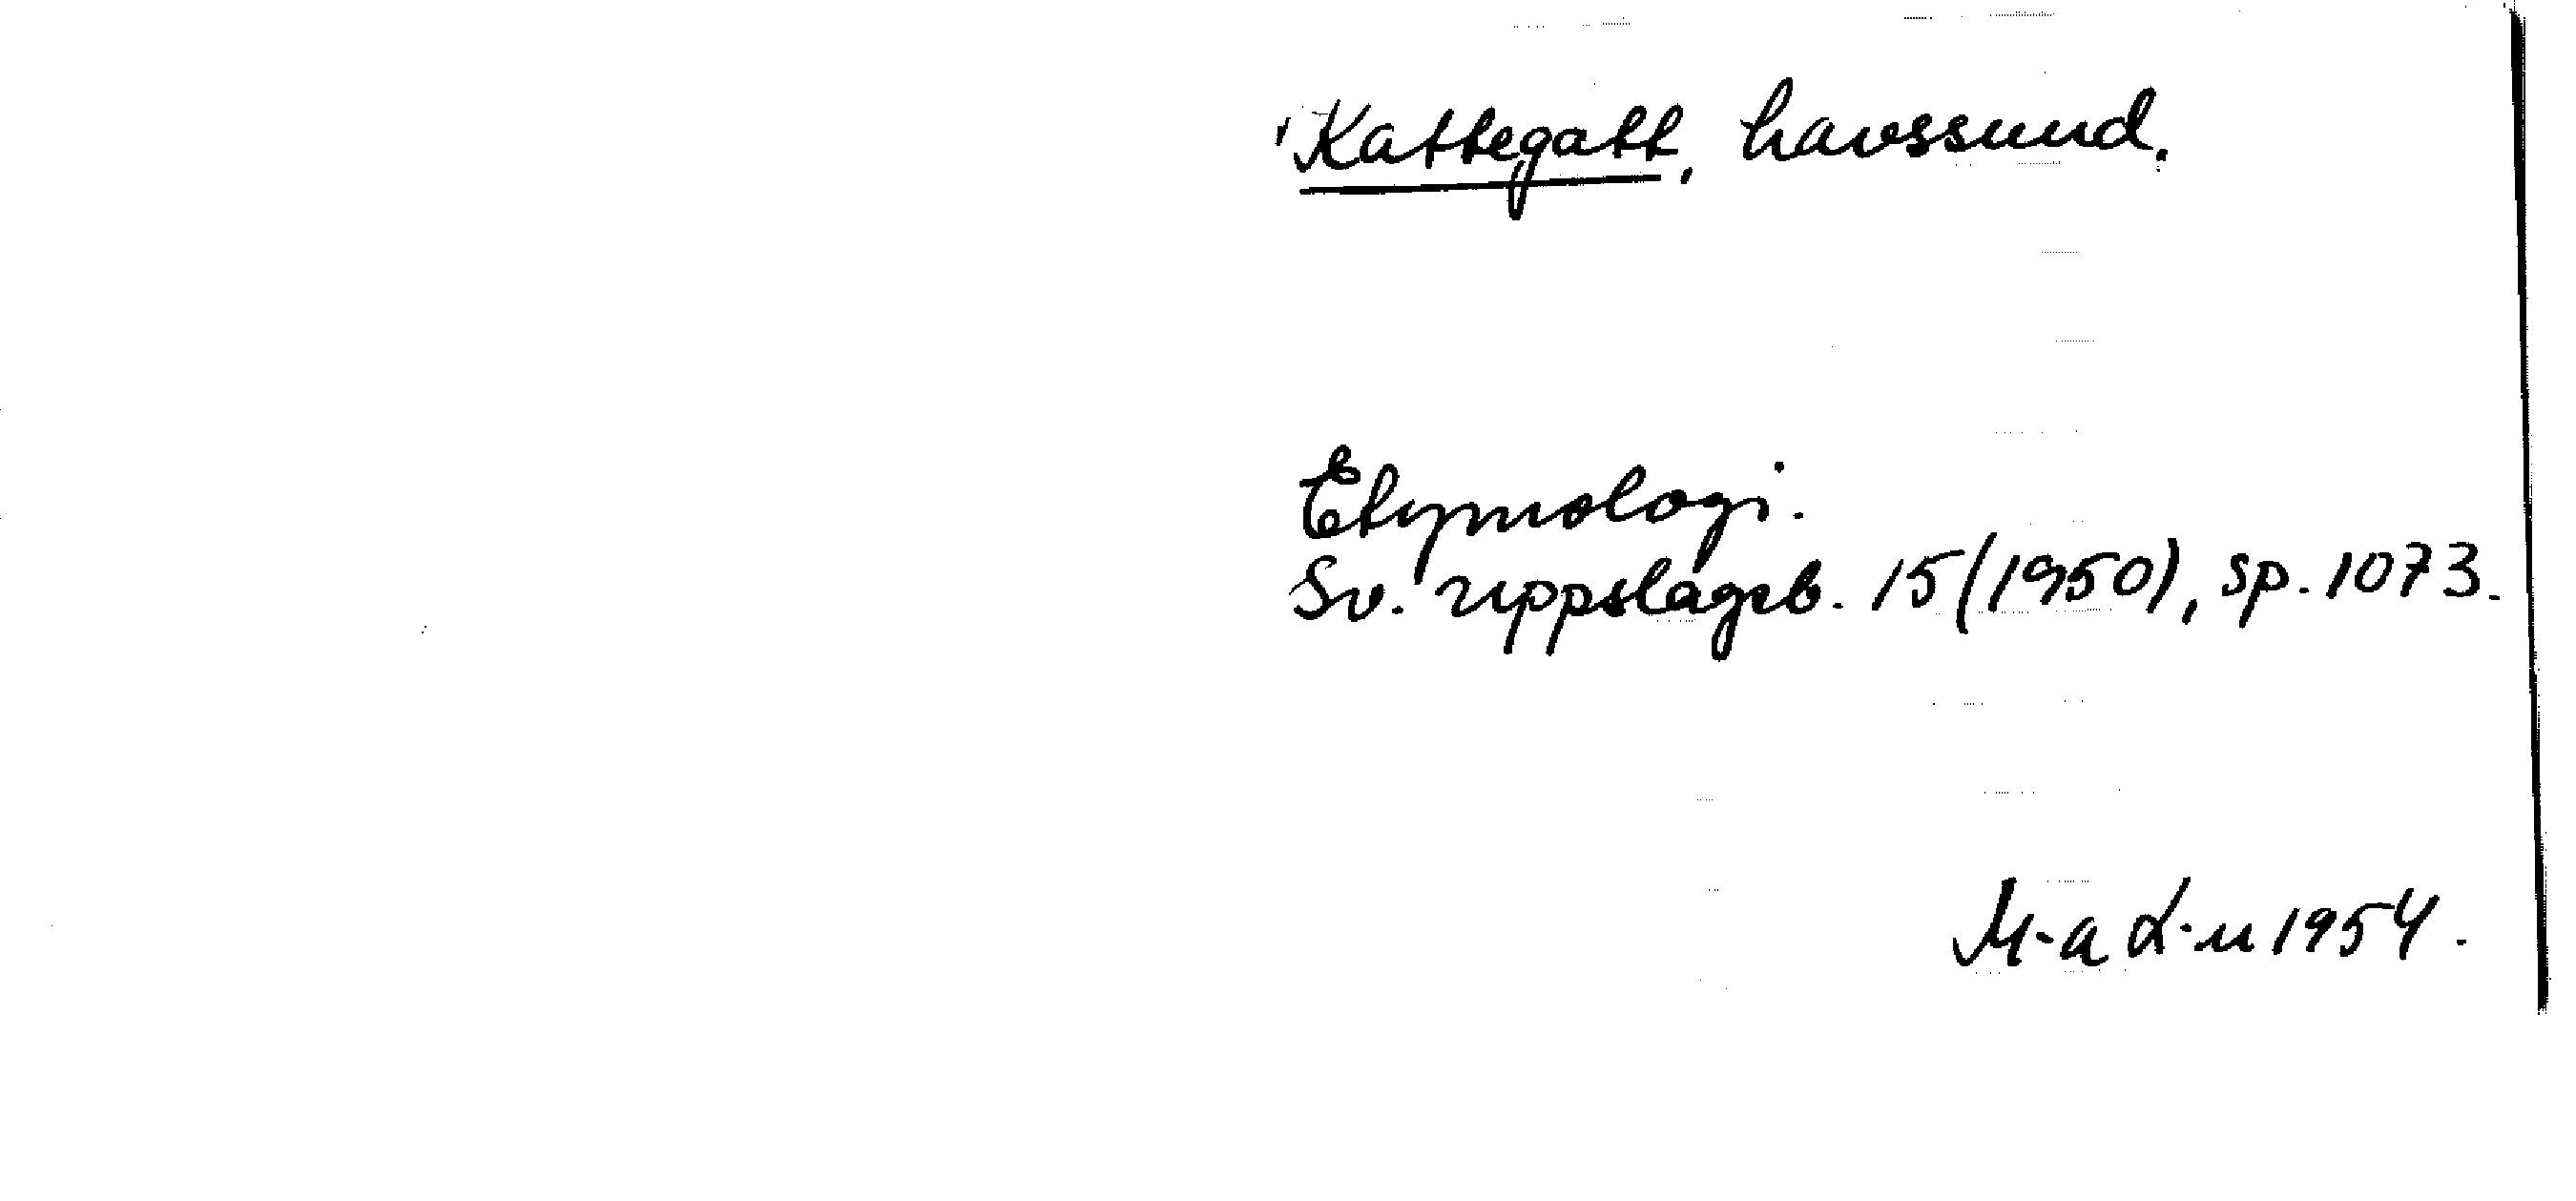 Kattegatt, havssund.
Etymologi.
Sv. uppslagsb. 15 (1950), sp. 1073.
M-a L-n 1954.